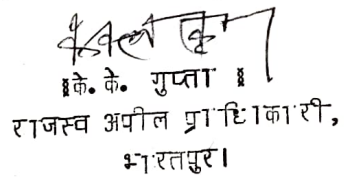 ॥के. के. गुप्ता॥
राजस्व अपील प्राधिकारी,
भरतपुर।